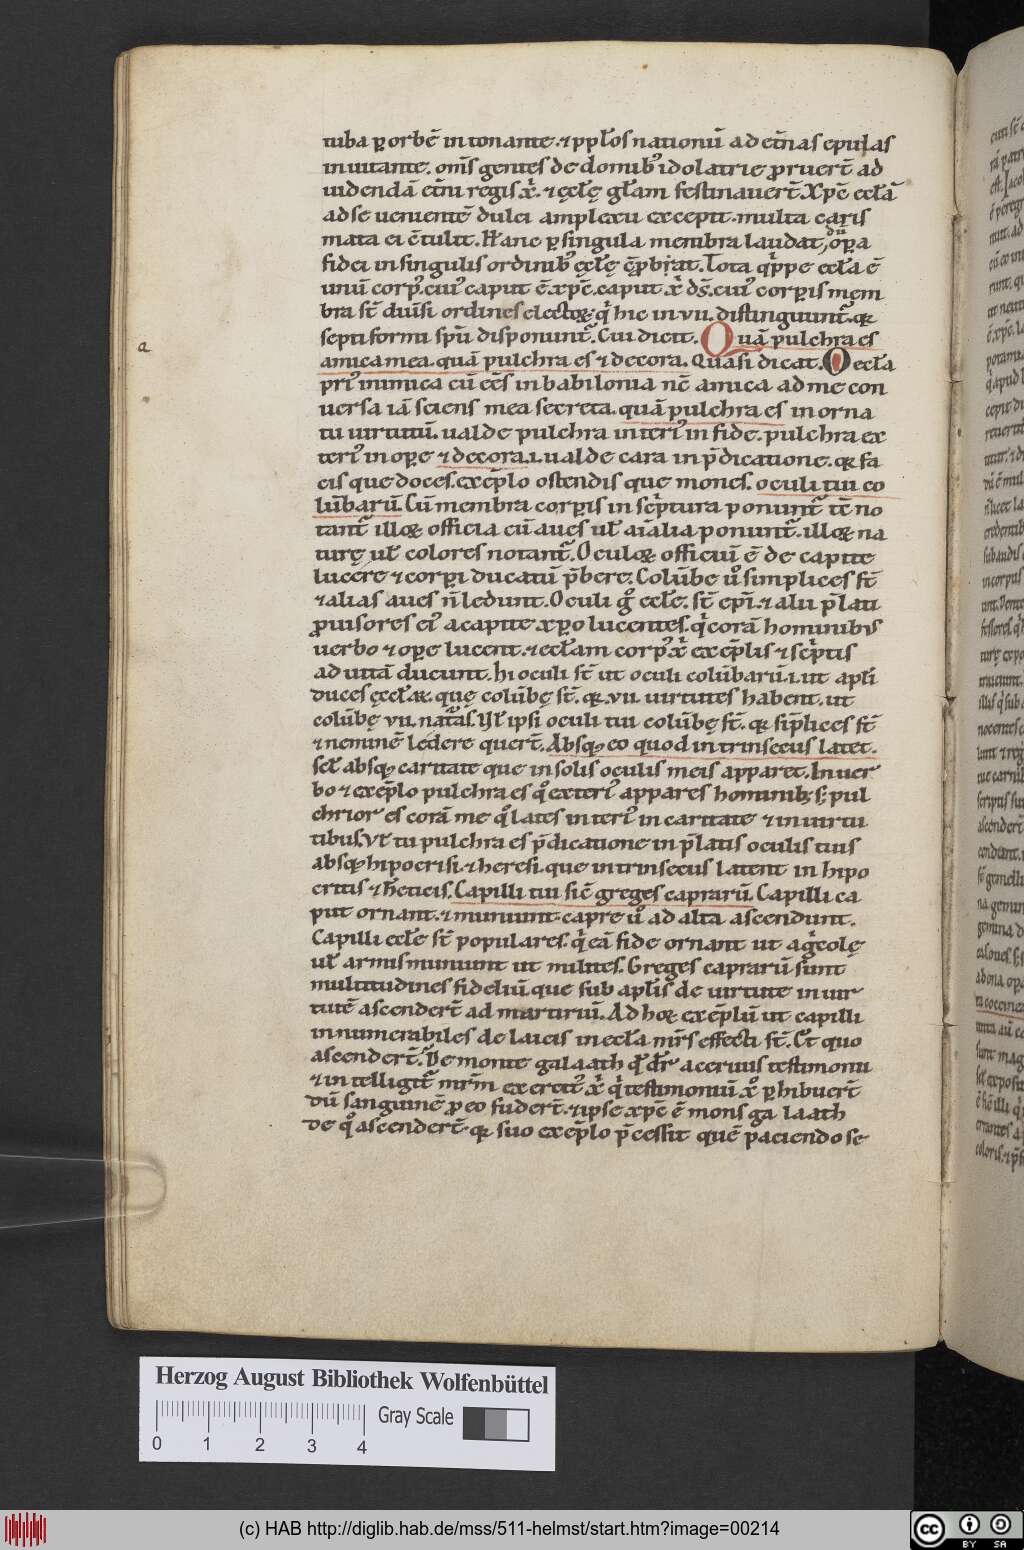 tuba ꝑ orbē in tonante. ⁊ ppl̄os nationū ad et̄nas epulas
inuitante. om̄s gentes de domibꝰ idolatrie ꝓruer̄t ad
uidendā et̄ni regis x̄. ⁊ ęcl̄ę gl̄am festinauer̄t. Xp̄c eccl̄ā
ad se uenientē dulci amplexu excepit. multa caris
mata ei ctulit. Hanc ꝑ singula membra laudat, dū oꝑa
fidei in singulis ordinibꝰ ęcl̄ę cp̄bat. Tota q̄ppe eccl̄a ē
unū corpꝰ. cuiꝰ caput ē xp̄c. caput x̄ ds̄. cuiꝰ corꝑis mem
bra st̄ diuisi ordines electoꝝ. q̄ hic in .vii. distinguunt᷑. qꝛ
septiformi spū disponunt᷑. Cui dicit. Quā pulchra es
amica mea. quā pulchra es ⁊ decora. Quasi dicat. O eccl̄a
priꝰ inimica cū eēs in babilonia nc̄ amica ad me con
uersa iā sciens mea secreta. quā pulchra es in orna
tu uirtutū. ualde pulchra interiꝰ in fide. pulchra ex
teriꝰ in oꝑe ⁊ decora .i. ualde cara in p̄dicatione. qꝛ fa
cis que doces. exēplo ostendis que mones. oculi tui co
lūbarū. Cū membra corꝑis in sc̄ptura ponunt᷑ tc̄ no
tant᷑ illoꝝ officia cū aues ul̄ aīalia ponunt᷑. illoꝝ na
turę ul̄ colores notant᷑. Oculoꝝ officiū ē de capite
lucere ⁊ corꝑi ducatū p̄bere. Colūbe ů simplices st̄
⁊ alias aues n̄ ledunt. Oculi g̊ eccl̄e. st̄ epī. ⁊ alii p̄lati
ꝓuisores eiꝰ a capite xp̄o lucentes. q̄ corā hominibꝰ
uerbo ⁊ oꝑe lucent. ⁊ eccl̄am corpꝰ x̄ exēplis ⁊ sc̄ptis
ad uitā ducunt. hi oculi st̄ ut oculi colūbarū .i. ut apl̄i
duces ęccl̄aꝝ. quę colūbę st̄. qꝛ .vii. uirtutes habent. ut
colūbę .vii. nat᷑as. Vl̄ ipsi oculi tui colūbę st̄. qꝛ sīplices st̄
⁊ neminē ledere quer̄t. Absqꝫ eo quod intrinsecus latet.
scl̄ absqꝫ caritate que in solis oculis meis apparet. In uer
bo ⁊ exēplo pulchra es qͦ exteriꝰ appares hominibꝫ sꝫ pul
chrior es corā me qͦ lates interiꝰ in caritate ⁊ in uirtu
tibus. Vl̄ tu pulchra es p̄dicatione in p̄latis oculis tuis
absqꝫ hipocrisi. ⁊ heresi. que intrinsecus latent in hipo
critis ⁊ hēticis. Capilli tui sic̄ greges caprarū. Capilli ca
put ornant. ⁊ muniunt. capre ů ad alta ascendunt.
Capilli eccl̄e st̄ populares. q̄ eā fide ornant ut agͥcolę
ul̄ armis muniunt ut milites. Greges caprarū sunt
multitudines fideliū. que sub apl̄is de uirtute in uir
tutē ascender̄t ad martiriū. Ad hoc exēplū ut capilli
innumerabiles de laicis in eccl̄a mr̄s effecti st̄. Et quo
ascender̄t. De monte galaath qͥ dr̄ aceruus testimonii
⁊ intelligit᷑ mr̄m exercitꝰ x̄ qͥ testimoniū xͦ ꝑhibuer̄t
dū sanguinē ꝓ eo fuder̄t. ⁊ ipse xp̄c ē mons galaath
de qͦ ascender̄t. qꝛ suo exēplo p̄cessit quē paciendo se
a
Herzog August Bibliothek Wolfenbüttel
Gray Scale
0 1 2 3 4
(c) HAB http://diglib.hab.de/mss/511-helmst/start.htm?image=00214
cc BY SA